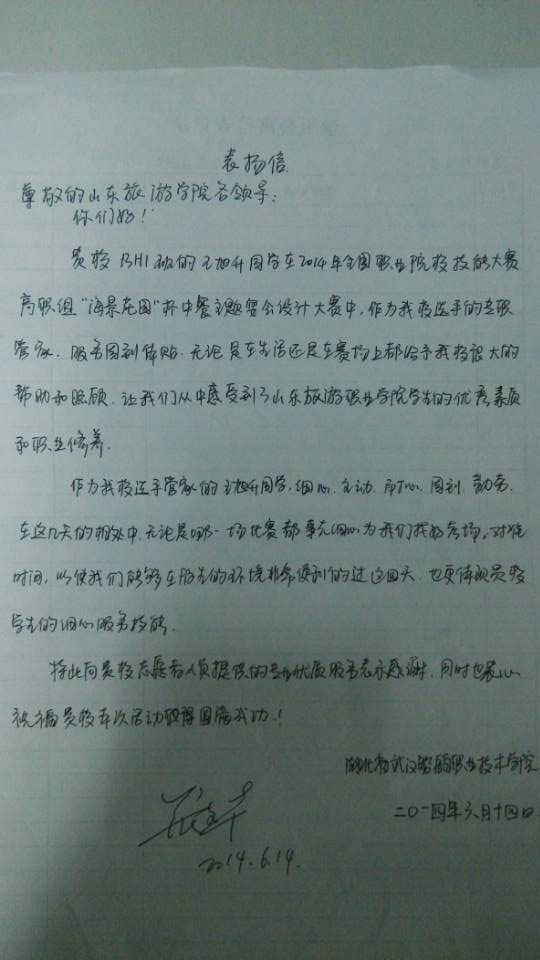 表扬信
尊敬的山东旅游学院各领导：
你们好！
贵校 13H1 班的王旭升同学在2014年全国职业院校技能大赛
高职组“海景花园”杯中餐主题宴会设计大赛中，作为我校选手的专职
管家，服务周到体贴.无论是在生活还是在赛场上都给予我校很大的
帮助和照顾.让我们从中感受到了山东旅游职业学院学生的优秀素质
和职业修养.
作为我校选手管家的王旭升同学,细心.主动.耐心.周到.勤劳.
在这几天的相处中.无论是哪一场比赛都事先细心为我们找好考场，对准
时间，以使我们能够在陌生的环境非常便利的过这四天.也更体现贵校
学生的细心服务技能.
特此向贵校志愿者人员提供的专业优质服务表示感谢.同时也衷心
祝福贵校本次活动取得圆满成功！
湖北省武汉 职业技术学院
二〇一四年六月十四日
2014.6.14.